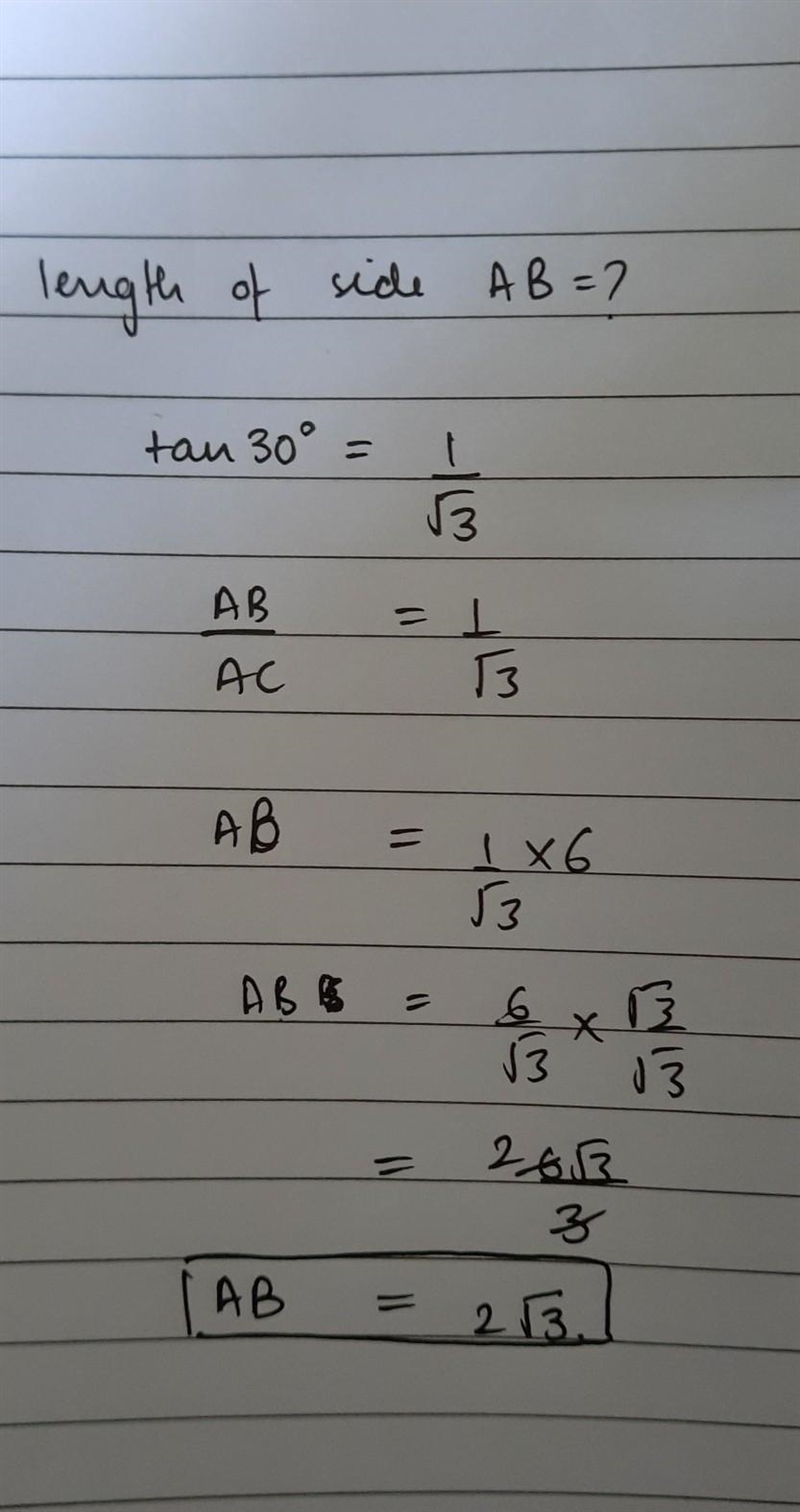 length of side AB = ?
tan 30° = 1/√3
AB/AC = 1/√3
AB = 1/√3 × 6
AB = 6/√3 × √3/√3
= 2 6√3/3
AB = 2√3.